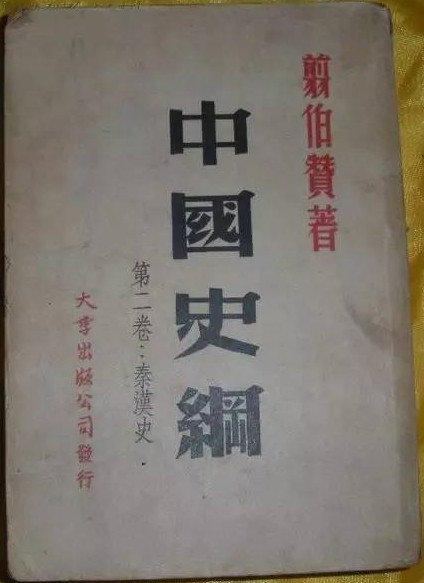 翦伯贊著
中國史綱
第二卷：秦漢史．
大孚出版公司發行